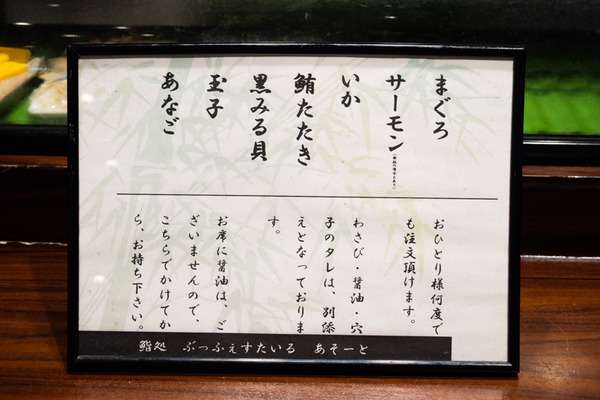 まぐろ
サーモン
いか
鮪たたき
黒みる貝
玉子
あなご
おひとり様何度で
も注文頂けます。
わさび・醤油・穴
子のタレは、別添
えとなっておりま
す。
お席に醤油は、ご
ざいませんので、
こちらでかけてか
ら、お持ち下さい。
鮨処 ぶっふぇすたいる あそーと